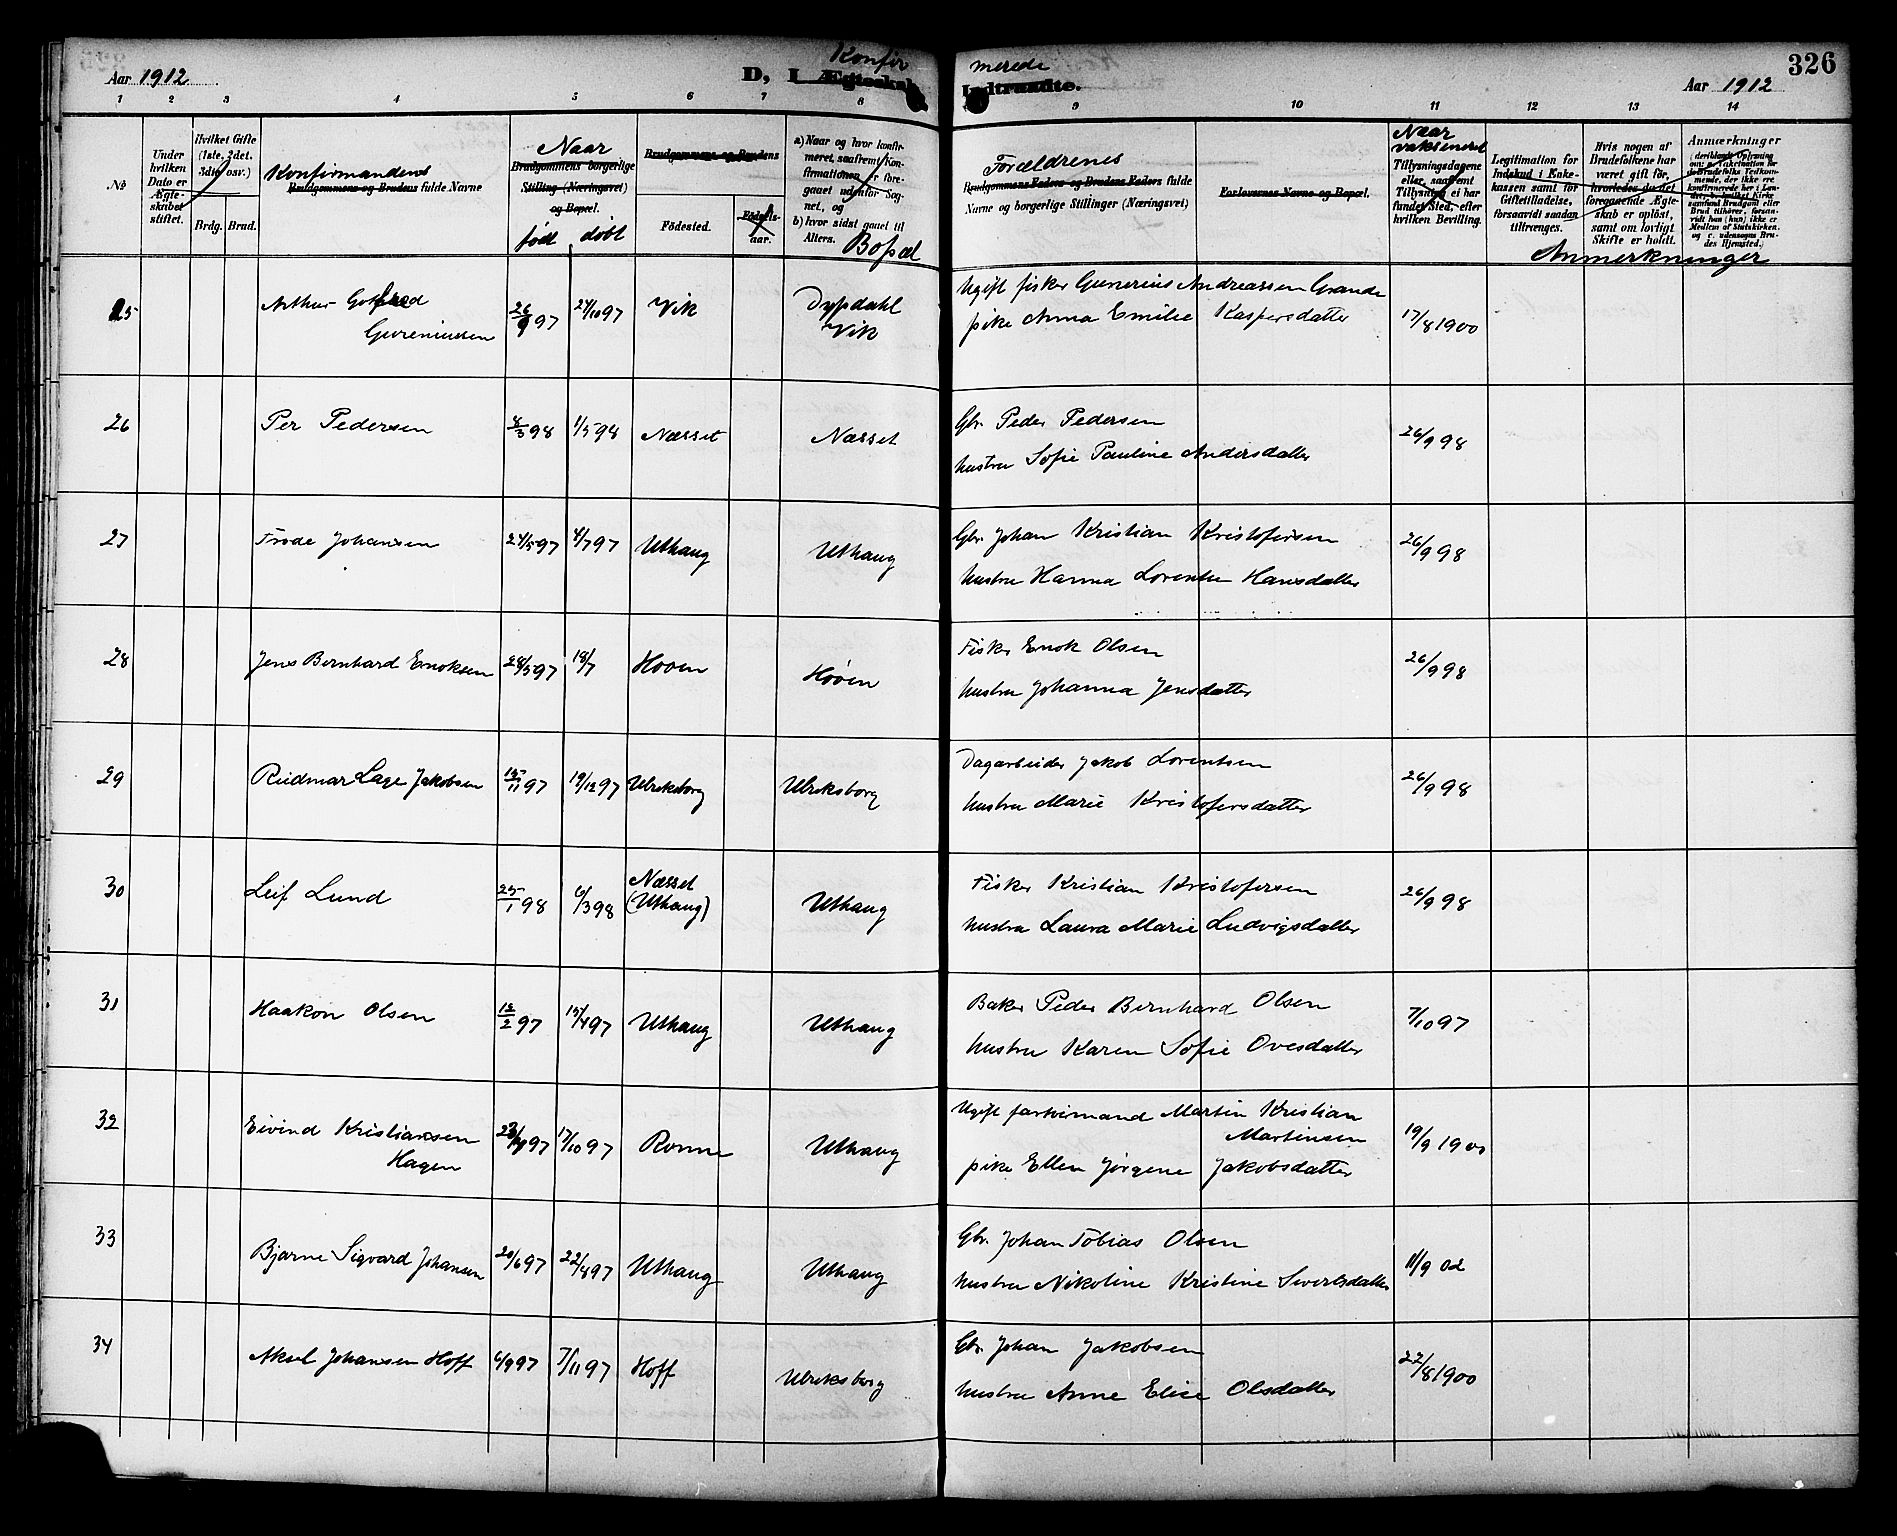 Aar 1912
D, I. Ægteskab
Konfir
merede
Indtraadte.
Aar 1912
326
1 2 3 4 5 6 7 8 9 10 11 12 13 14
No
Under hvilken Dato er Ægteskabet stiftet.
Hvilket Gifte (1ste, 2det, 3die osv.)
Brdg. Brud.
Konfirmandens
Brudgommens og Brudens fulde Navne
Naar
Brudgommens borgerlige Stilling (Næringsvei) og Bopæl.
født døbt
Brudgommens og Brudens
Fødested.
Fødselsaar.
a) Naar og hvor konfirmeret, saafremt Konfirmationen er foregaaet udenfor Sognet, og
b) hvor sidst gaaet til Alters.
Bopæl
Forældrenes
Brudgommens Faders og Brudens Faders fulde
Navne og borgerlige Stillinger (Næringsvei)
Forlovernes Navne og Bopæl.
Naar vaksineret
Tillysningsdagene eller, saafremt Tillysning ei har fundet Sted, efter hvilken Bevilling.
Legitimation for Indskud i Enkekassen samt for Giftetilladelse, forsaavidt saadan tiltrænges.
Hvis nogen af Brudefolkene har været gift før, hvorledes da det foregaaende Ægteskab er opløst, samt om lovligt Skifte er holdt.
Anmærkninger
Anmerkninger
25 Arthur Gotfred Guneriussen 26/9 97 24/10 97 Vik Dypdahl Vik
Ugift fisker Gunerius Andreassen Grande
pike Anna Emilie Kaspersdatter 17/8 1900
26 Per Pedersen 4/3 98 1/5 98 Næsset Næsset
Gbr. Peder Pedersen
hustru Sofie Pauline Andersdatter 26/9 98
27 Frode Johansen 24/5 97 4/7 97 Uthaug Uthaug
Gbr. Johan Kristian Kristofersen
hustru Hanna Lorentse Hansdatter 26/9 98
28 Jens Bernhard Enoksen 28/5 97 18/7 Hoven Høien
Fisker Enok Olsen
hustru Johanna Jensdatter 26/9 98
29 Reidmar Lage Jakobsen 15/11 97 19/12 97 Ulriksborg Ulriksborg
Dagarbeider Jakob Lorentsen
hustru Marie Kristofersdatter 26/9 98
30 Leif Lund 25/1 98 6/3 98 Næsset (Uthaug) Uthaug
Fisker Kristian Kristofersen
hustru Laura Marie Ludvigsdatter 26/9 98
31 Haakon Olsen 12/2 97 15/4 97 Uthaug Uthaug
Baker Peder Bernhard Olsen
hustru Karen Sofie Ovesdatter 7/10 97
32 Eivind Kristiansen Hagen 97 17/10 97 Ronne Uthaug
Ugift førstemand Martin Kristian Martinsen
pike Ellen Jørgene Jakobsdatter 19/9 1900
33 Bjarne Sigvard Johansen 20/6 97 22/8 97 Uthaug Uthaug
Gbr. Johan Tobias Olsen
hustru Nikoline Kristine Sivertsdatter 11/9 02
34 Aksel Johansen Hoff 6/9 97 7/11 97 Hoff Ulriksborg
Gbr. Johan Jakobsen
hustru Anne Elise Olsdatter 22/8 1900